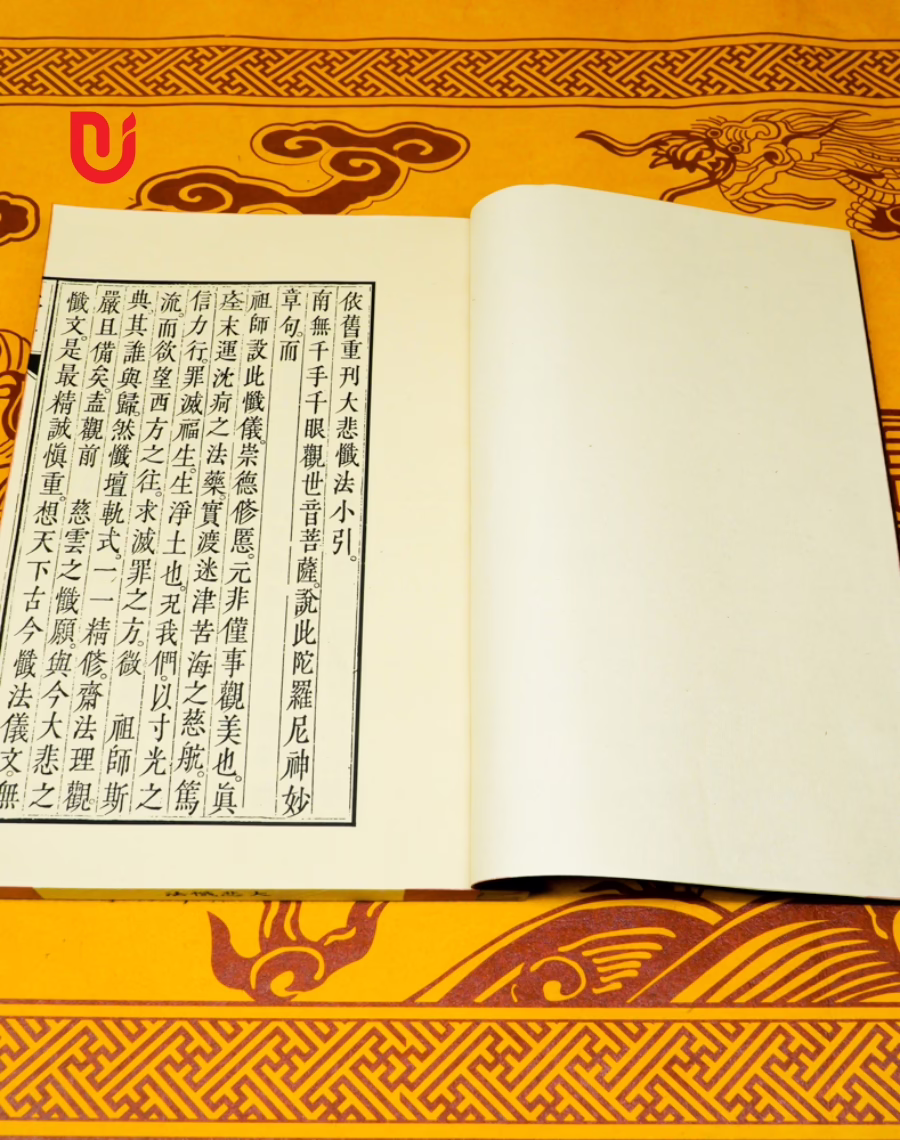 依舊重刊大悲懺法小引。
南無千手千眼觀世音菩薩。說此陀羅尼神妙
章句。而
祖師設此懺儀。崇德修慝。元非僅事觀美也。眞
末運沈疴之法藥。實渡迷津苦海之慈航。篤
信力行。罪滅福生。生淨土也。况我們。以寸光之
流。而欲望西方之往。求滅罪之方。微 祖師斯
典。其誰與歸。然懺壇軌式。一一精修。齋法理觀。
嚴且備矣。盍觀前 慈雲之懺願。與今大悲之
懺文。是最精誠愼重。想天下古今懺法儀文。無
大悲懺法